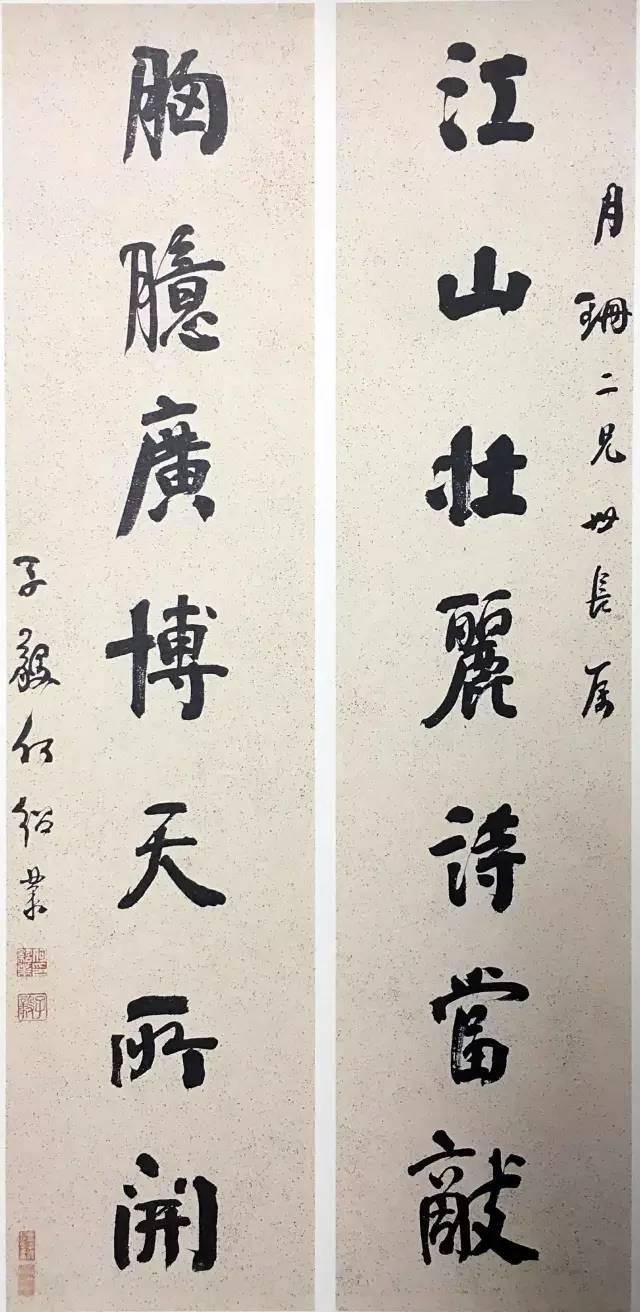 月珊二兄世長属
江山壯麗詩當敵
胸臆廣博天所開
子毅何紹業